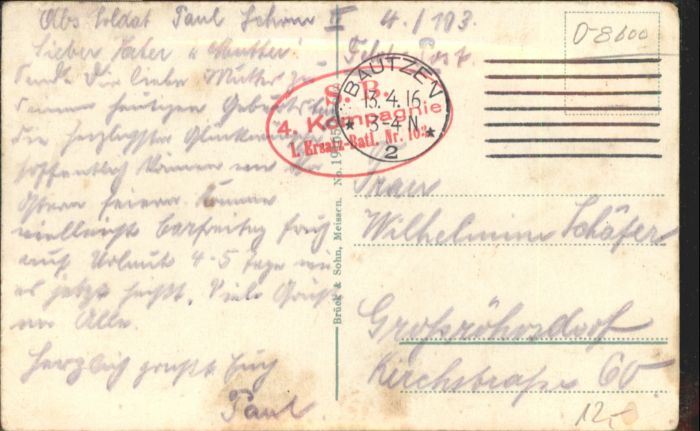 Abs. Soldat Paul II 4./103.
Feldpost
Lieber Vater u. Mutter!
Sende Dir liebe Mutter zu
Deinem heutigen Geburtstag
die herzlichsten Glückwünsche
hoffentlich können wir
Ostern feiern. Komme
vielleicht Karfreitag früh
auf Urlaub 4-5 Tage wie
es jetzt heißt. Viele Grüße
an Alle.
Herzlich grüßt Euch
Paul
S. B.
4. Kompagnie
1. Ersatz-Batl. Nr. 103
BAUTZEN
13.4.16
* 3-4 N *
2
0-8600
Brück & Sohn, Meissen.
Frau
Wilhelmine Schäfer
Großröhrsdorf
Kirchstraße 60
12,-